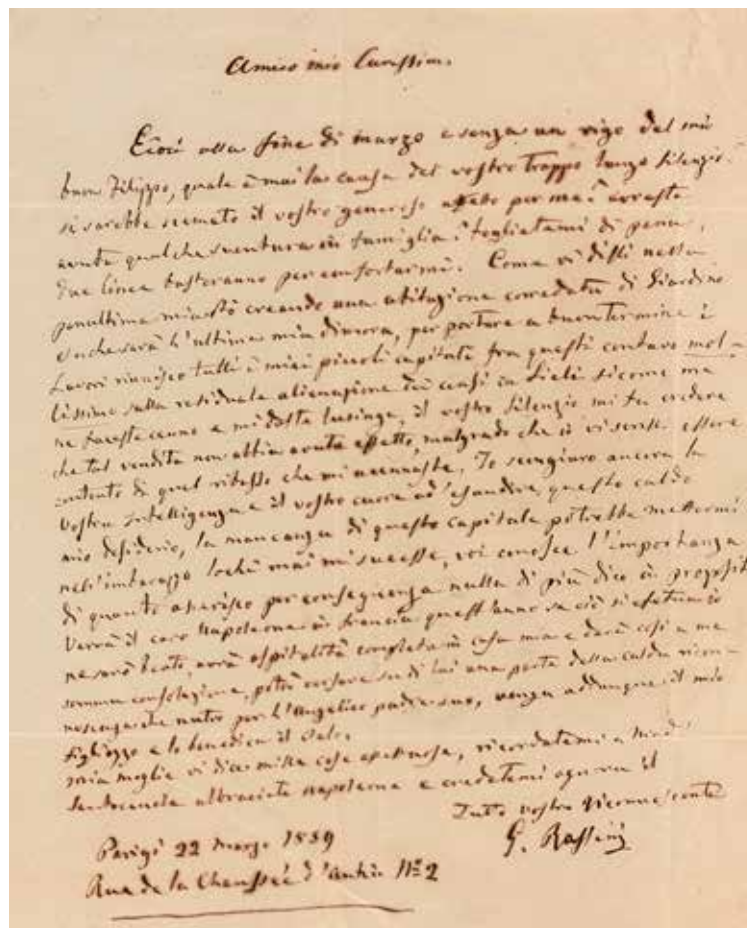 Amico mio Carissimo.
Eccoci alla fine di marzo e senza un rigo del mio
buon Filippo, quale è mai la causa del vostro troppo lungo silenzio.
si sarebbe scemato il vostro generoso affetto per me? avreste
avuta qualche sventura in famiglia? toglietemi di pena,
due linee basteranno per confortarmi. Come vi dissi nella
penultima mia stò creando una abitazione corredata di Giardino
e che sarà l'ultima mia dimora, per portare a buon termine i
Lavori riunisco tutti i miei piccoli capitali fra questi contavo mol-
tissimo sulla residuale alienazione dei censi in siccome me
ne faceste cenno a mi dolce lusinga, il vostro silenzio mi fa credere
che tal vendita non abbia avuta effetto, malgrado che io vi scrissi essere
contento di quel ribasso che mi accennaste, Io scongiuro ancora la
vostra intelligenza e il vostro cuore ad esaudire questo caldo
mio desiderio, la mancanza di questo capitale potrebbe mettermi
nell'imbarazzo locchè mai mi sucesse, voi l'importanza
di quanto asserisco per conseguenza nulla di più dico in proposit
Verrà il caro Napoleone in francia quest'anno se ciò si efetua io
ne sarò beato, avrà ospitalità completa in casa mia e darà così a me
somma consolazione, potrò su di lui una parte della calda ricon-
noscenza che nutro per l'Angelico padre suo, venga addunque il mio
figliozzo e lo benedica il Cielo.
mia moglie vi dice mille cose affettuose, ricordatemi a
abbraciate Napoleone e credetemi ognora il
Tutto vostro riconoscente
G. Rossini
Parigi 22 Marzo 1859
Rue de la Chaussée d'Antin N° 2